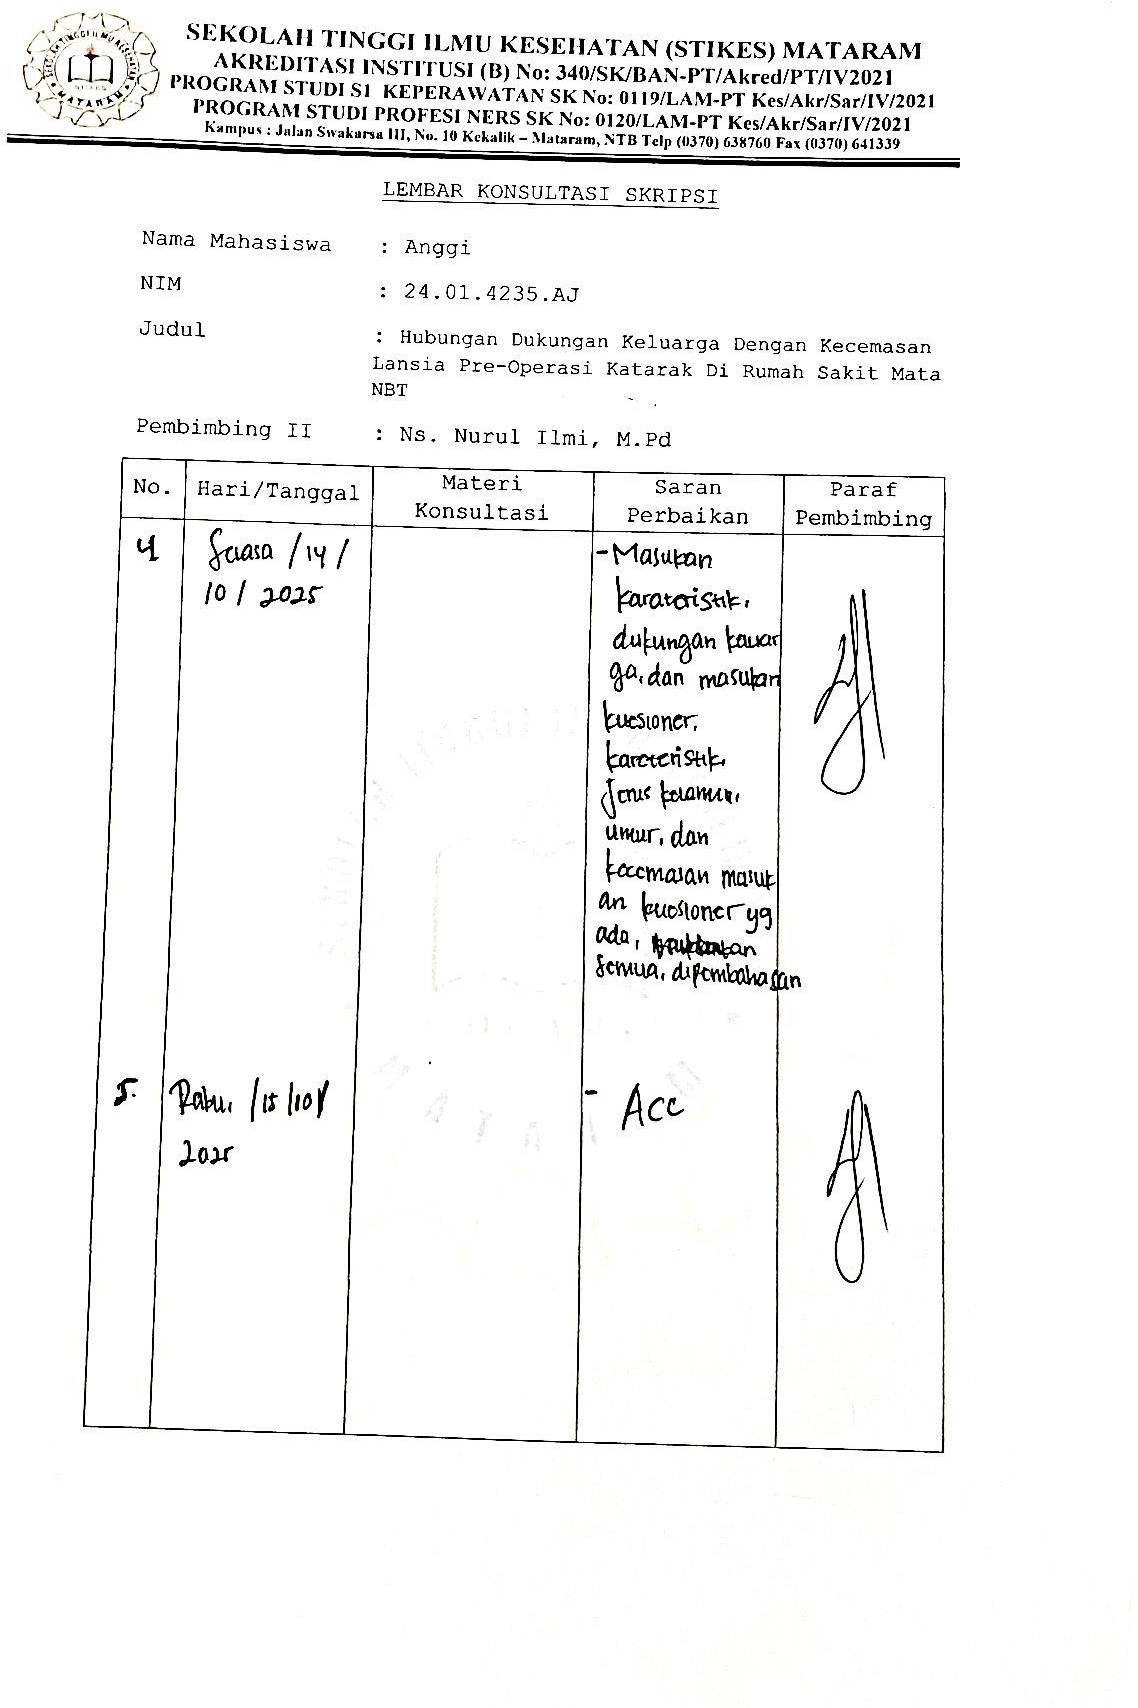 SEKOLAH TINGGI ILMU KESEHATAN (STIKES) MATARAM
AKREDITASI INSTITUSI (B) No: 340/SK/BAN-PT/Akred/PT/IV2021
PROGRAM STUDI S1 KEPERAWATAN SK No: 0119/LAM-PT Kes/Akr/Sar/IV/2021
PROGRAM STUDI PROFESI NERS SK No: 0120/LAM-PT Kes/Akr/Sar/IV/2021
Kampus : Jalan Swakarsa III, No. 10 Kekalik – Mataram, NTB Telp (0370) 638760 Fax (0370) 641339
LEMBAR KONSULTASI SKRIPSI
Nama Mahasiswa : Anggi
NIM : 24.01.4235.AJ
Judul : Hubungan Dukungan Keluarga Dengan Kecemasan
Lansia Pre-Operasi Katarak Di Rumah Sakit Mata
NBT
Pembimbing II : Ns. Nurul Ilmi, M.Pd
No. Hari/Tanggal Materi Konsultasi Saran Perbaikan Paraf Pembimbing
4 Selasa /14/
10 / 2025
- Masukan
karateristik,
dukungan keluar
ga, dan masukan
kuesioner,
karateristik,
Jenis kelamin,
umur, dan
kecemasan masuk
an kuesioner yg
ada,
semua, dipembahasan
5. Rabu, /15/10/
2025
- Acc